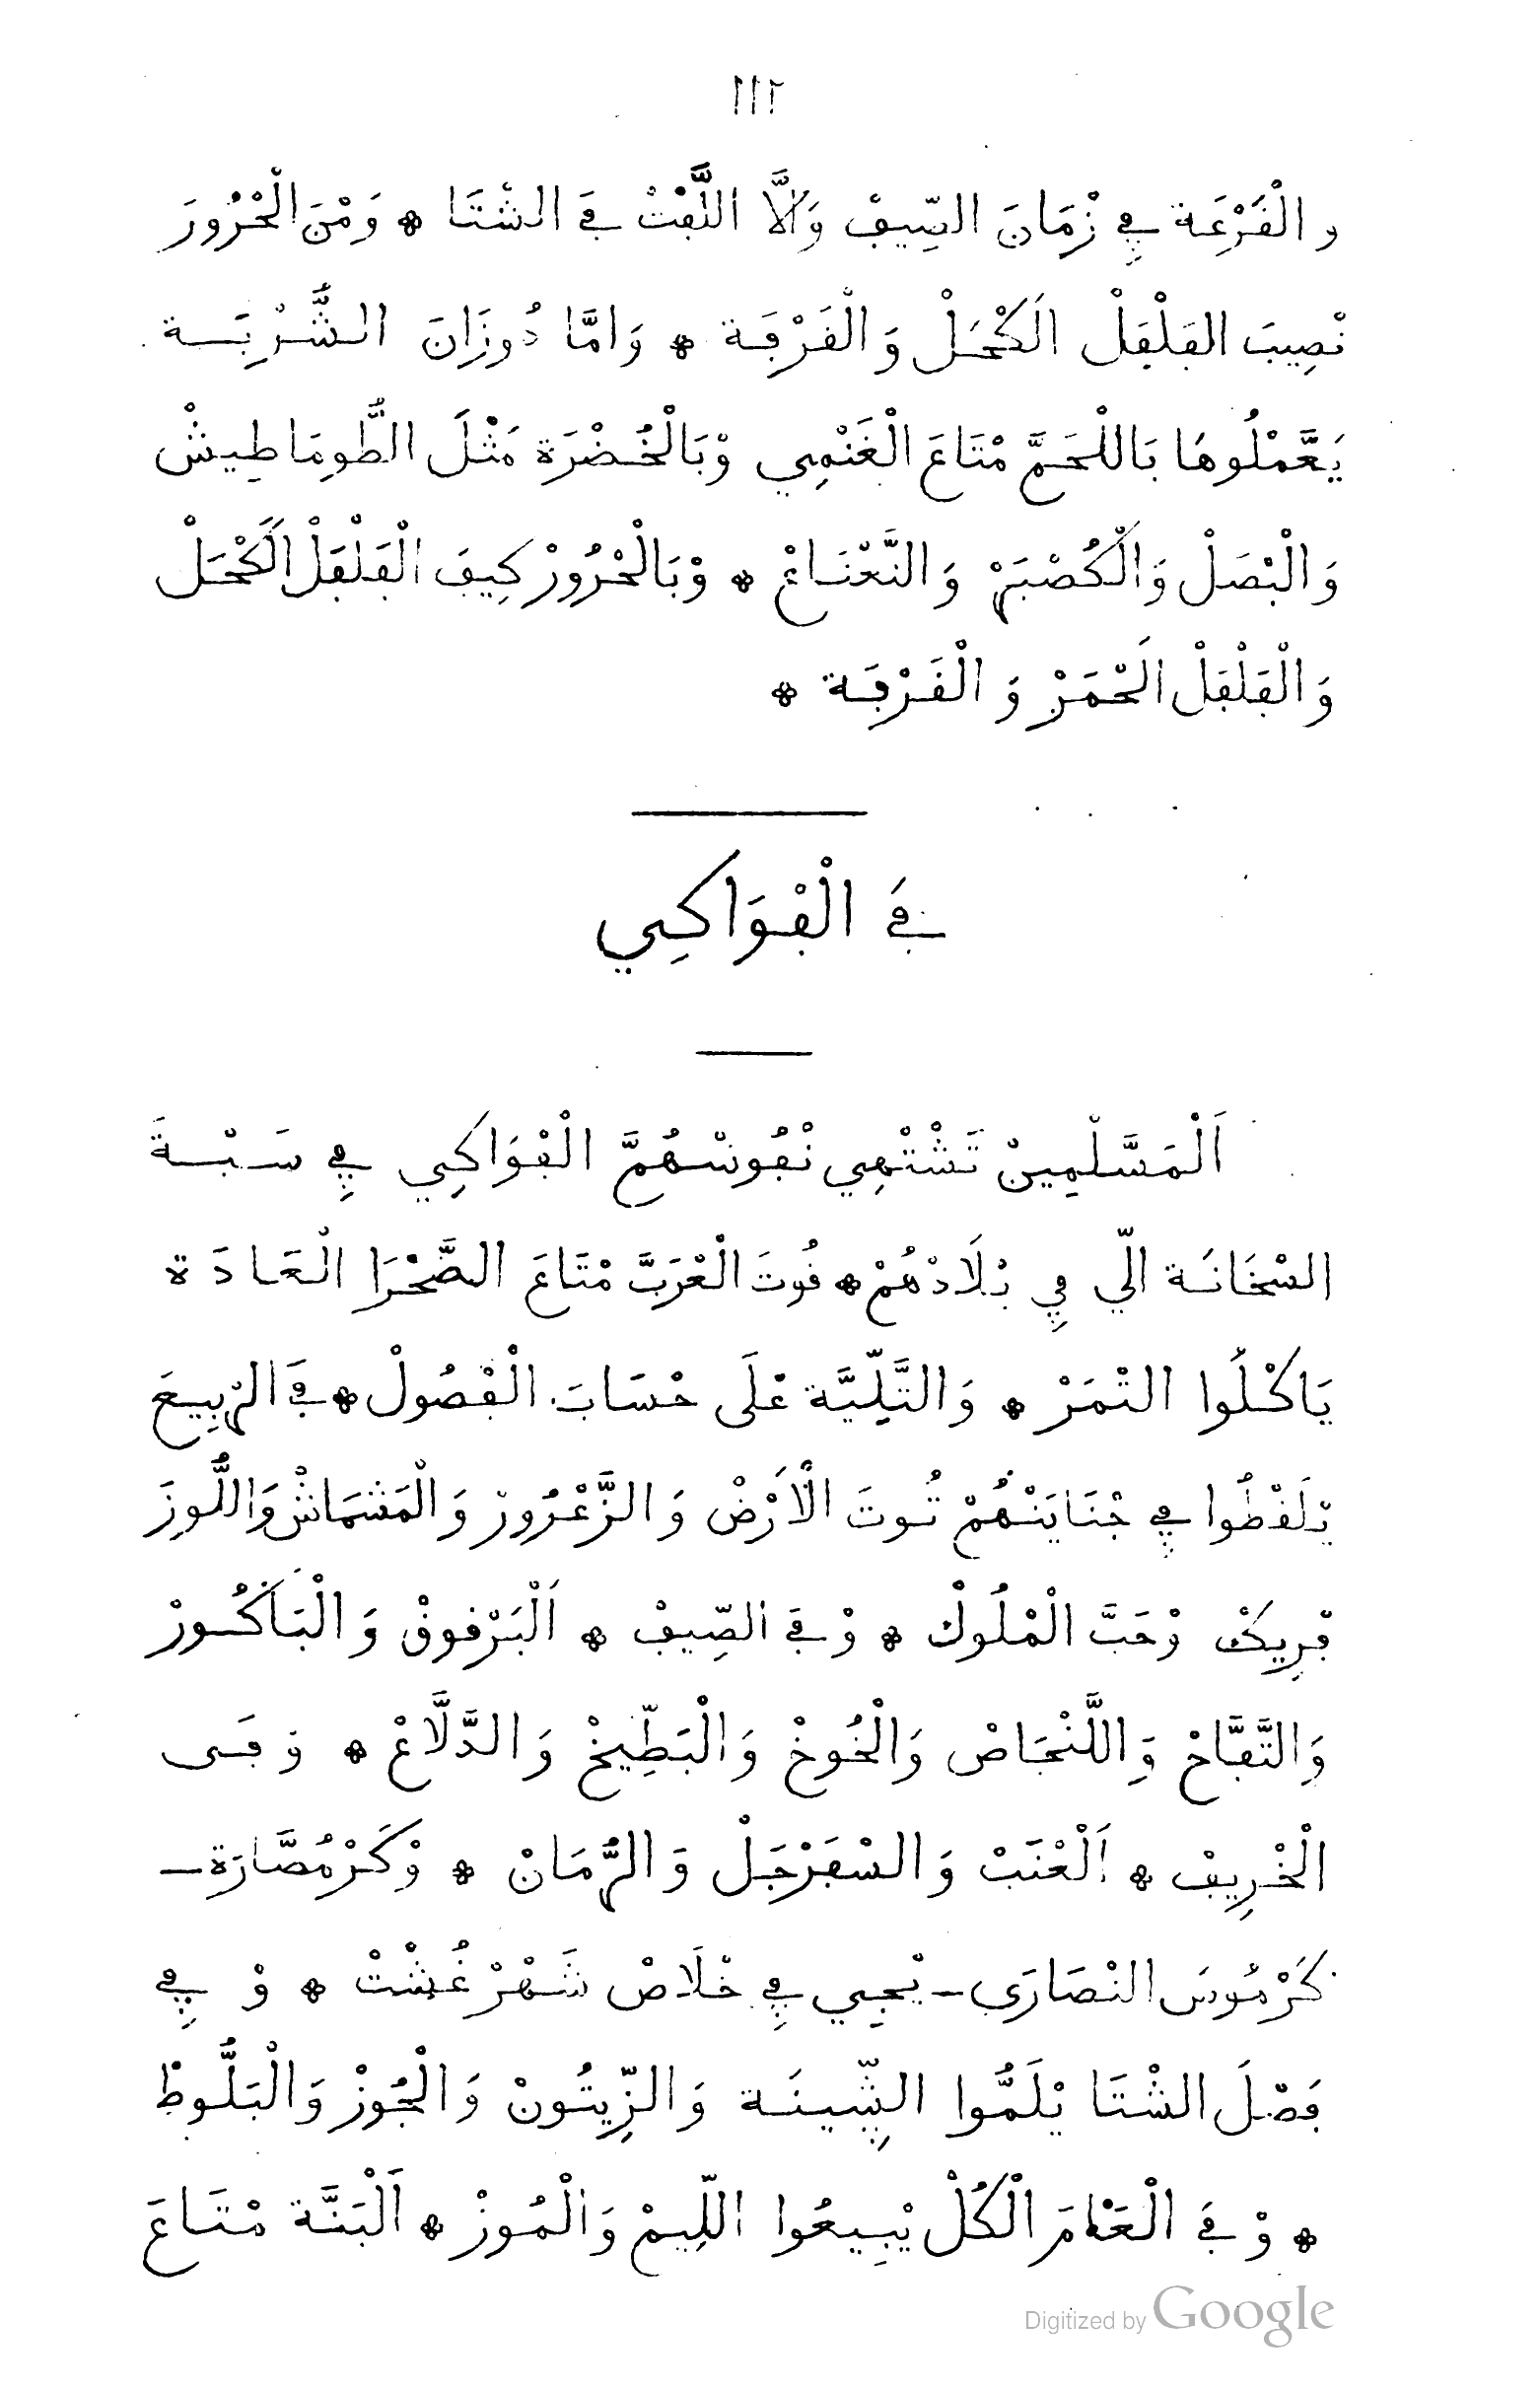 ١١٢
والْفَرْعَة فِي زْمَانَ الصِّيفْ وَالَّا اللَّفْتْ فَي الشْتَا * وَمْنَ الْحْرُورَ
نْصِيبَ الفَلْفَلْ الَكْحَلْ وَالْقَرْفَة * وَامَّا دُوزَانَ الشُّرْبَة
يَعَّمْلُوهَا بَاللْحَمَّ مْتَاعَ الْغَنْمِي وْبَالْخُضْرَة مَثْلَ الطُّومَاطِيشْ
وَالْبْصَلْ وَالْكُصْبَرْ وَالنَّعْنَاعْ * وْبَالْحْرُورْ كِيفَ الْفَلْفَلْ الَكْحَلْ
وَالْفَلْفَلْ الَحْمَرْ وَ الْقَرْفَة *
فَي الْفْوَاكِي
اَلْمَسَّلْمِينْ تَشْتْهِي نْفُوسْهُمَّ الْفْوَاكِي فِي سَبْةَ
السْخَانَة الّي فِي بْلَادْهُمْ * قُوتَ الْعْرَبَّ مْتَاعَ الصَّحْرَا الْعَادَة
يَاكْلُوا التْمَرْ * وَالتَّلِّيَّة عْلَى حْسَابَ الْفْصُولْ * فَي الرّبِيعَ
يْلَقْطُوا فِي جْنَايَنْهُمْ تُوتَ الْاَرْضْ وَ الزَّعْرُورْ وَ الْمَشمَاشْ وَاللُّوزَ
فْرِيكْ وْحَبَّ الْمْلُوكْ * وْ فَي الصِّيفْ * اَلْبَرْقوقْ وَ الْبَاكُورْ
وَالتَّفَّاحْ وَاللَّنْجَاصْ وَالْخُوخْ وَالْبَطِّيخْ وَالدَّلَّاعْ * وَ فَى
الْخْرِيفْ * اَلْعْنَبْ وَ السْفَرْجَلْ وَ الرُّمَانْ * وْكَرْمُصَّارَة –
كَرْمُوسَ النْصَارَي – يْجِي فِي خْلَاصْ شَهْرْ غُشْتْ * وْ فِي
فَصْلَ الشْتَا يْلَمُّوا الشِّينَة وَ الزِّيتُونْ وَ الْجُوزْ وَالْبَلُّوطْ
* وْ فَي الْعَامَ الْكُلْ يْبِيعُوا اللِّيمْ وَالْمُوزْ * اَلْبَنَّة مْتَاعَ
Digitized by Google